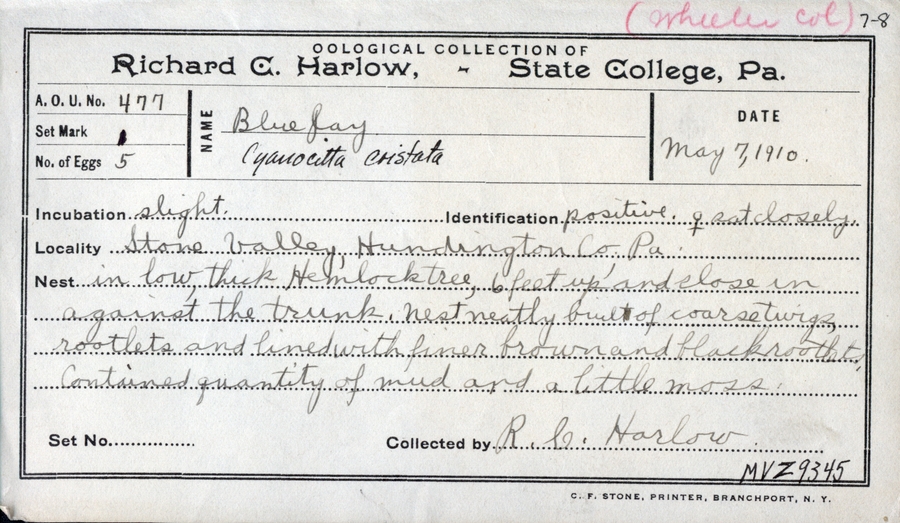 (Wheeler col) 7-8
OOLOGICAL COLLECTION OF
Richard C. Harlow, - State College, Pa.
A. O. U. No. 477
Set Mark 1
No. of Eggs 5
NAME
Blue Jay
Cyanocitta cristata
DATE
May 7, 1910.
Incubation slight. Identification positive. ♀ sat closely.
Locality Stone Valley, Hundrington Co. Pa.
Nest in low, thick Hemlock tree, 6 feet up and close in
against the trunk. Nest neatly built of coarse twigs,
rootlets and lined with finer brown and black rootlets,
Contained quantity of mud and a little moss.
Set No. Collected by R. C. Harlow.
MVZ 9345
C. F. STONE, PRINTER, BRANCHPORT, N. Y.